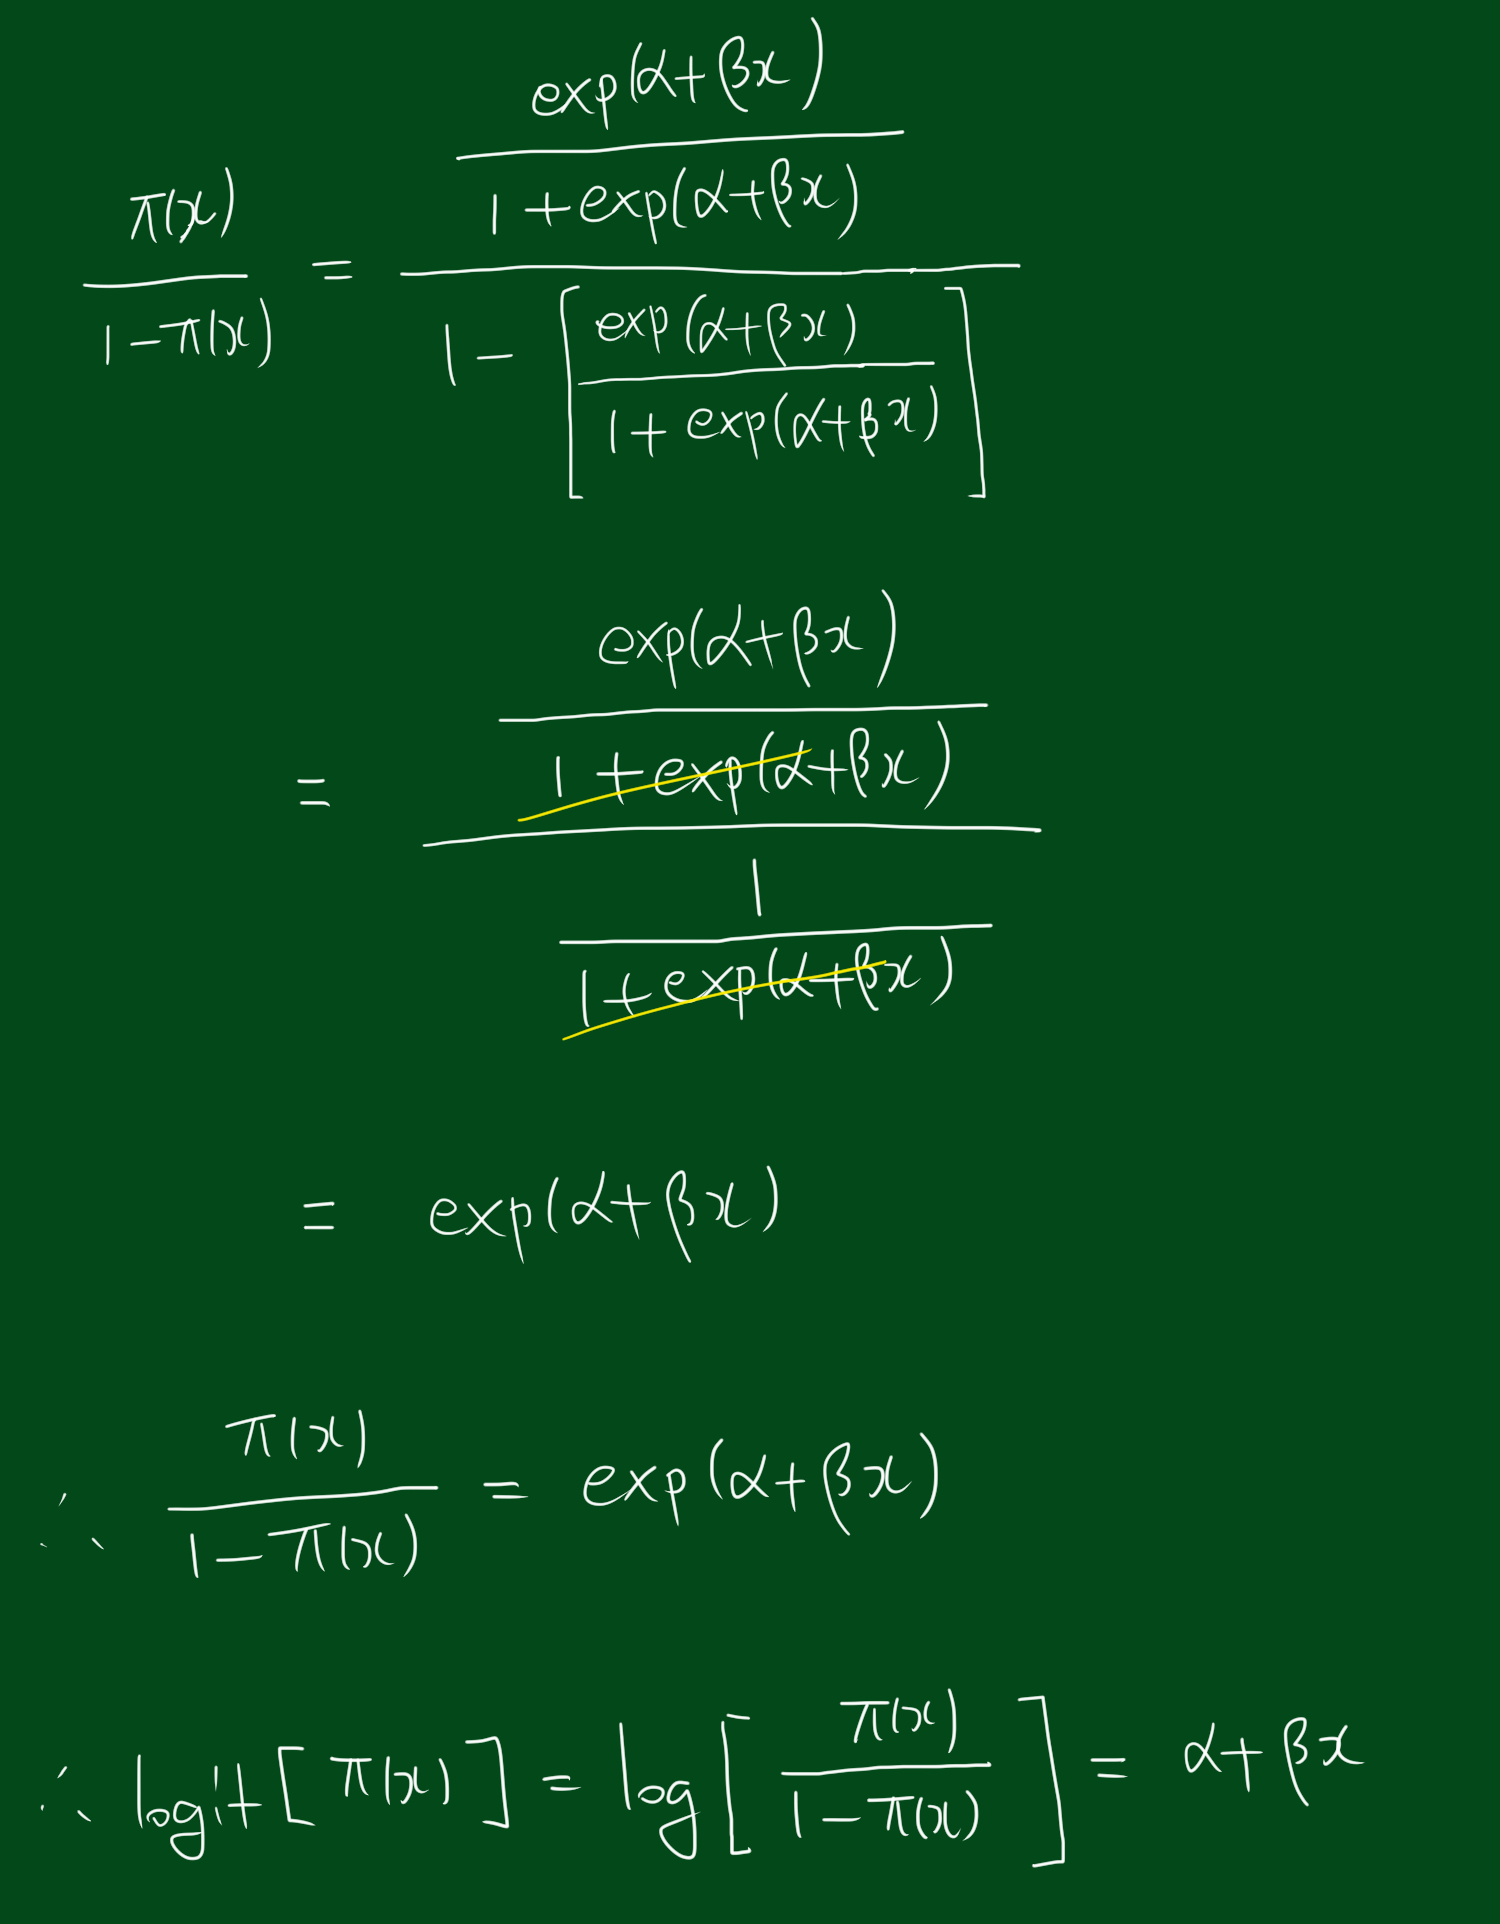 π(x) / 1-π(x) = [exp(α+βx) / 1+exp(α+βx)] / [1-[exp(α+βx) / 1+exp(α+βx)]]
= [exp(α+βx) / 1+exp(α+βx)] / [1 / 1+exp(α+βx)]
= exp(α+βx)
∴ π(x) / 1-π(x) = exp(α+βx)
∴ logit[π(x)] = log[π(x) / 1-π(x)] = α+βx